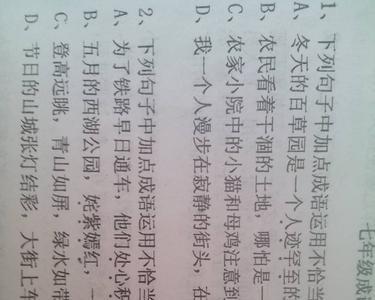 七年级成语
1、下列句子中加点成语运用不恰当
A、冬天的百草园是一个人迹罕至的
B、农民看着干涸的土地，哪怕是一
C、农家小院中的小猫和母鸡注意到
D、我一个人漫步在寂静的街头，在
2、下列句子中加点成语运用不恰当
A、为了铁路早日通车，他们处心积
B、五月的西湖公园，姹紫嫣红，一
C、登高远眺，青山如屏，绿水如带
D、节日的山城张灯结彩，大街上车